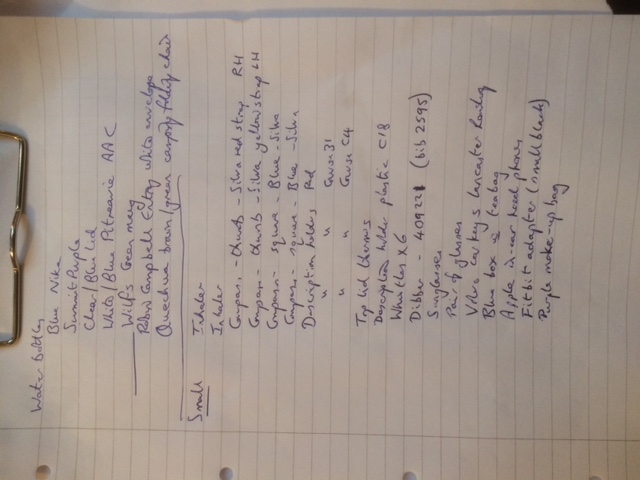 Water bottles
Blue Nike
Summit Purple
Clear/Blue Lid
White/Blue Pitreavie AAC
Wilf's Green mug
Robin Campbell Entry white envelope
Quechua brown/green canopy folding chair
Small
Inhaler
Inhaler
Compass - thumb - Silva red strap RH
Compass - thumb - Silva yellow strap LH
Compass - square - Blue - Silva
Compass - square - Blue - Silva
Description holders Red
" " Course 31
" " Course C4
Top lid thermos
Description holder plastic C18
Whistles x 6
Dibber - 409221 (bib 2595)
Sunglasses
Pair of glasses
Volvo car keys Lancaster keyring
Blue box teabag
Apple in-ear head phones
Fitbit adapter (small black)
Purple make-up bag